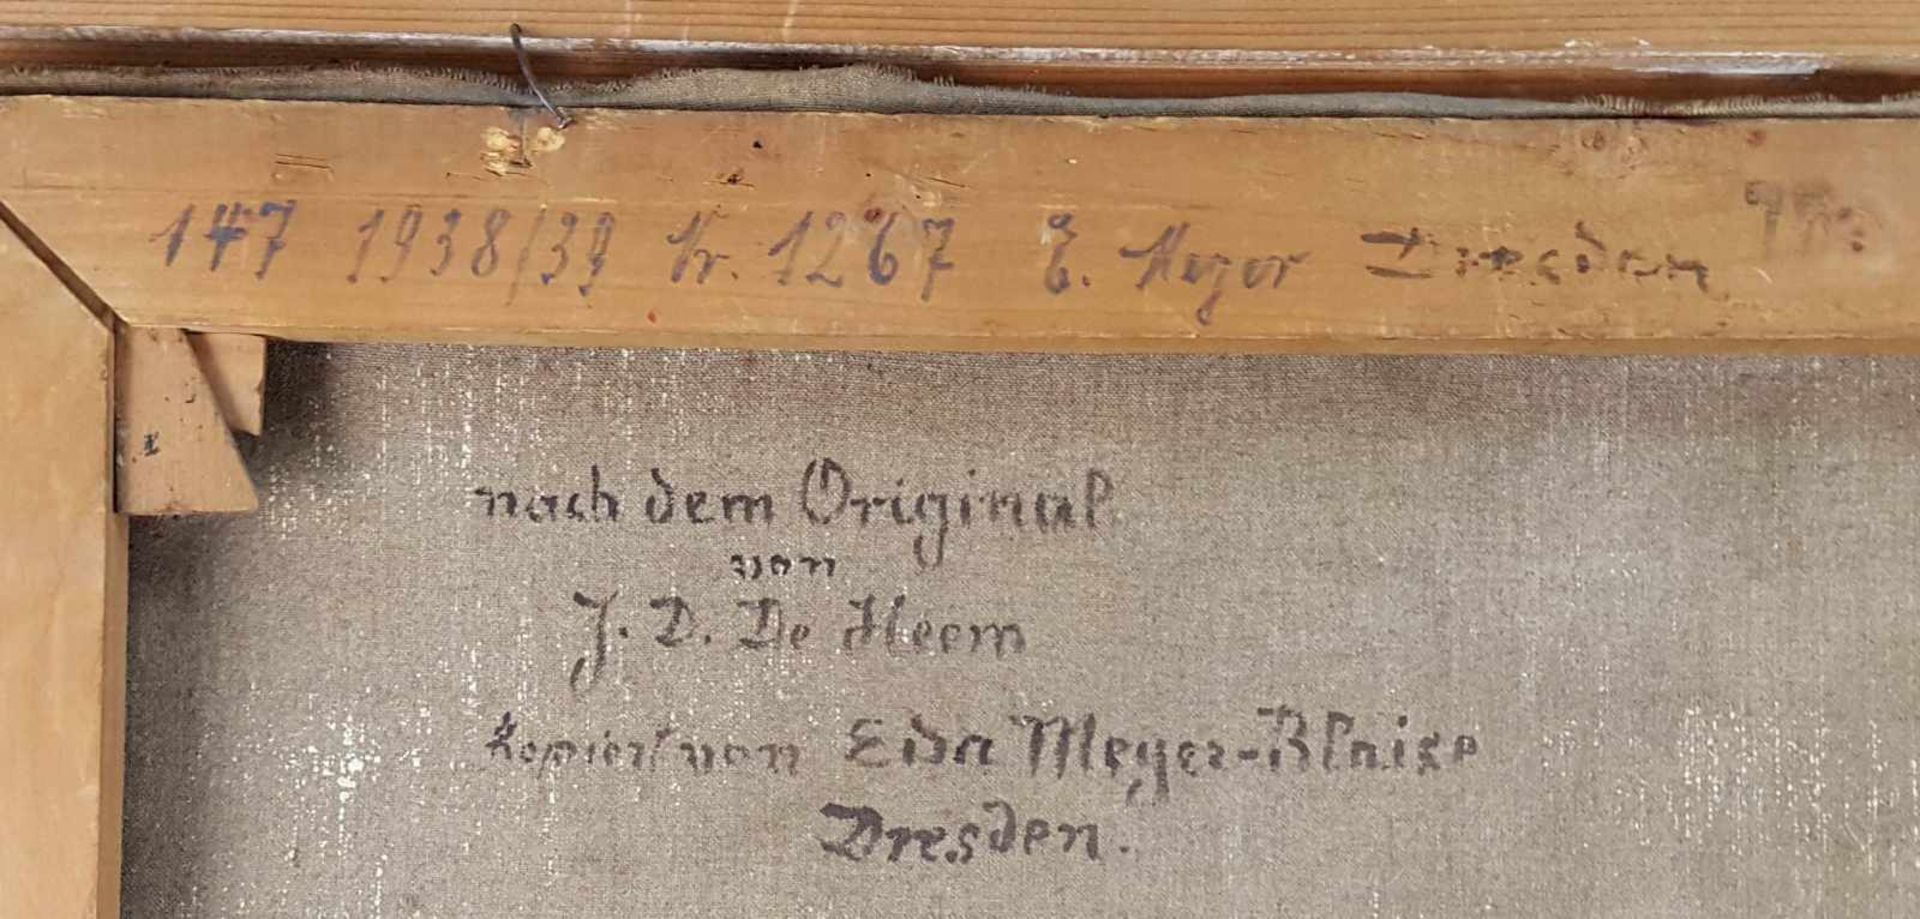 147 1938/39 Nr. 1267 E. Meyer Dresden
nach dem Original
von
J. D. De Heem
kopiert von Eida Meyer-Blaise
Dresden.